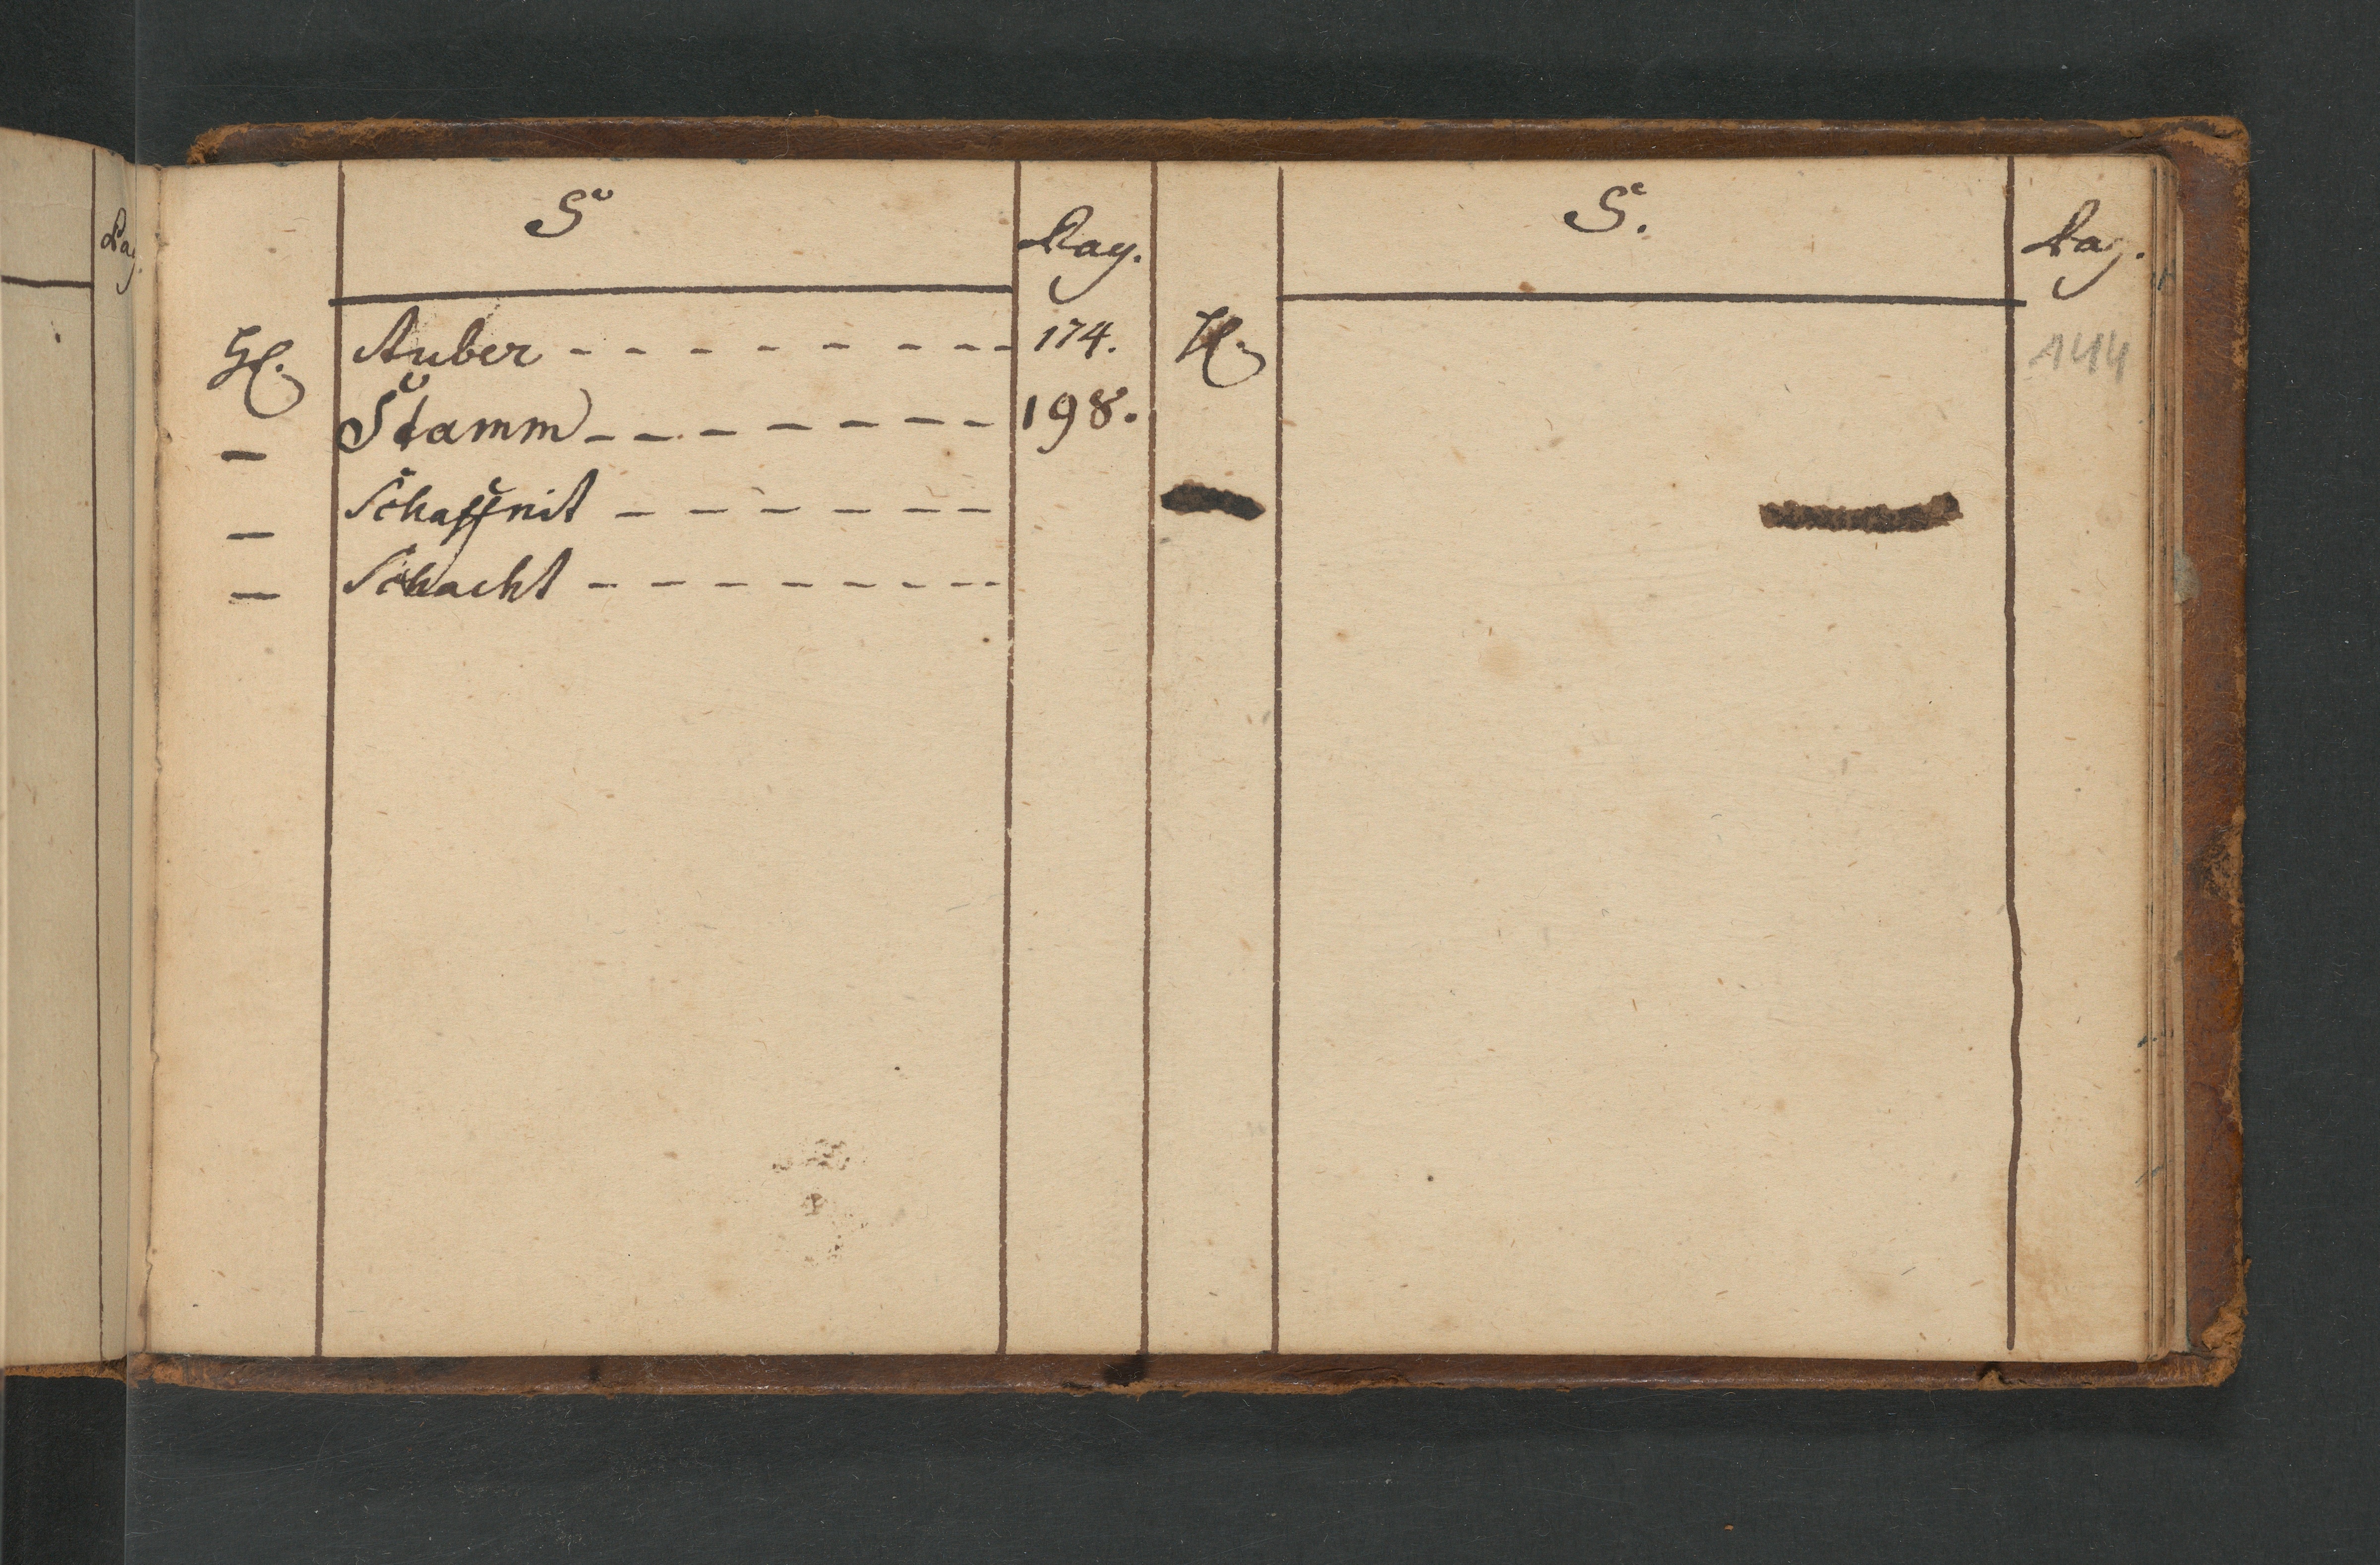 Pag.
S
Pag.
H. Stuber - - - - - - - - - 174.
— Stamm - - - - - - - 198.
— Schaffnit - - - - - - -
— Schacht - - - - - - - -
S.
Pag.
H.
144